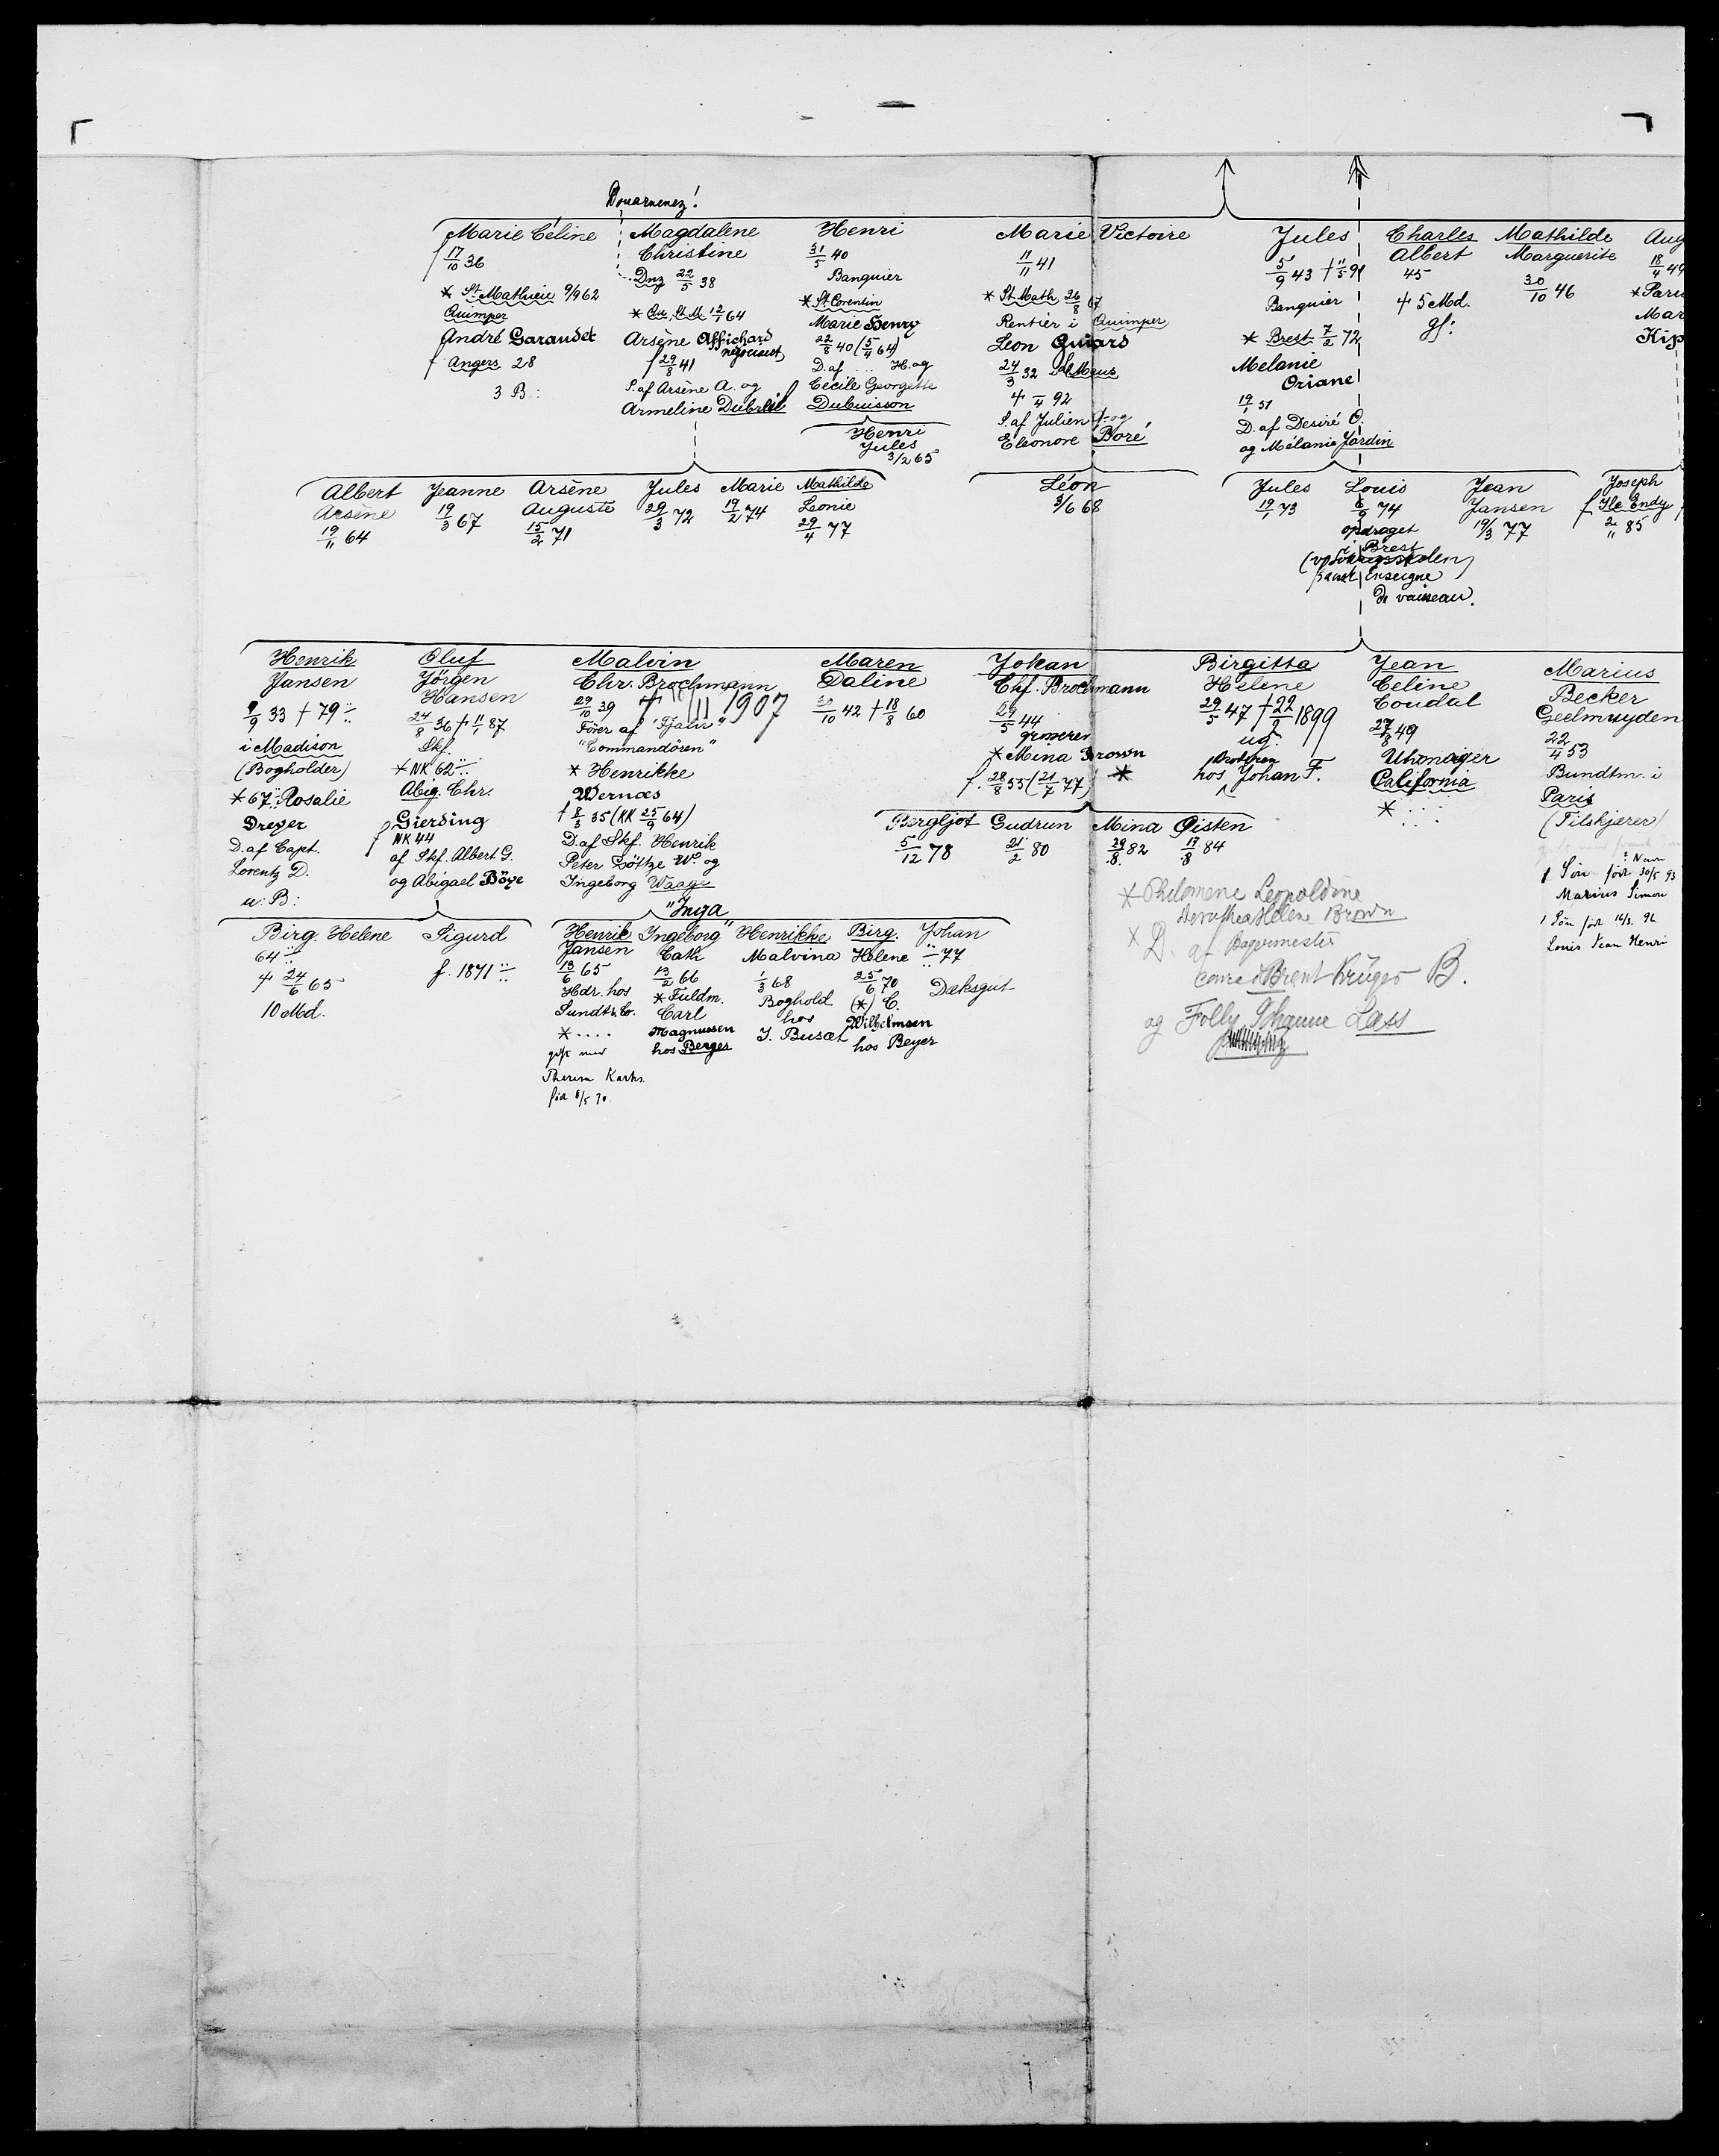 Douarnenez!
Marie Céline
17/10 36
* St. Mathieu 9/9 62
Quimper
André Garaudet
f Angers 28
3 B:
Magdalene
Christine
Dnz 22/5 38
* Qu. St. M. 12/1 64
Arsène Affichard
négociant
f 29/8 41
S. af Arsène A. og
Armeline Dubreil
Henri
31/5 40
Banquier
* St. Corentin
Marie Henry
22/8 40 (5/4 64)
D. af .... H. og
Cécile Georgette
Dubuisson
Henri
Jules
3/2 65
Marie Victoire
11/11 41
* St Math 26/8 67
Rentier i Quimper
Leon Guiard
24/3 32 Le Mans
4 - 92
S. af Julien G. og
Eleonore Boré
Jules
5/9 43 † 11/5 91
Banquier
* Brest 7/2 72
Melanie
Oriane
19/1 51
D. af Desiré O.
og Mélanie Jardin
Charles
Albert
45
4 5 Md.
gf:
Mathilde
Marguerite
30/10 46
Aug
18/4 49
* Paris
Mar
Kip
Albert
Arsène
19/11 64
Jeanne
19/3 67
Arsène
Auguste
15/2 71
Jules
29/3 72
Marie
19/2 74
Mathilde
Leonie
29/4 77
Léon
3/6 68
Jules
19/1 73
Louis
6/9 74
opdraget
i Brest
Enseigne
de vaisseau.
Jean
Jansen
19/3 77
Joseph
f Ile Endy
2/11 85
Henrik
Jansen
9/9 33 † 79
i Madison
(Bogholder)
* 67 Rosalie
Dreyer
D. af Capt.
Lorentz D.
u: B:
Oluf
Jörgen
Hansen
24/8 36 † 11/1 87
Skf.
* NK 62
Abig. Chr.
Gierding
f NK 44
af Skf. Albert G.
og Abigael Böye
Malvin
Chr. Brochmann
29/10 39 † 18/11 1907
Förer af "Fjalir"
"Commandören"
* Henrikke
Wernæs
f 8/3 35 (KK 25/9 64)
D. af Skf. Henrik
Peter Götze W. og
Ingeborg Waage
Maren
Daline
30/10 42 † 18/8 60
Johan
Chr. Brochmann
29/5 44
grosserer
* Mina Brown *
f. 28/8 55 (21/7 77)
Birgitta
Helene
29/5 47 † 22/9 1899
ug.
broderen
hos Johan F.
Jean
Celine
Coudal
27/8 49
Uhrmager
California
*
Marius
Becker
Geelmuyden
22/4 53
Bundtm. i
Paris
(Tilskjærer)
? Navn
1 Søn född 30/5 93
Marius Simon
1 Søn född 16/3. 92
Louis Jean Henri
Bergljot
5/12 78
Gudrun
21/2 80
Mina
29/8 82
Øisten
17/8 84
* Philomene Leopoldine
Dorothea Helene Brown
* D. af Bagermester
Conrad Brent Krüger B.
og Folly Johanne Lass
Birg. Helene
64
4 24/6 65
10 Md.
Sigurd
f. 1871
Henrik
Jansen
13/6 65
Hdr. hos
Sundt & Co.
* ....
gift med
Theresa Karhs.
född 8/5 70.
"Inga"
Ingeborg
Cath
13/2 66
* Fuldm.
Carl
Magnussen
hos Berger
Henrikke
Malvina
1/3 68
Boghold.
hos
J. Busæt
Birg.
Helene
25/6 70
(*) C.
Wilhelmsen
hos Beyer
Johan
77
Dæksgut